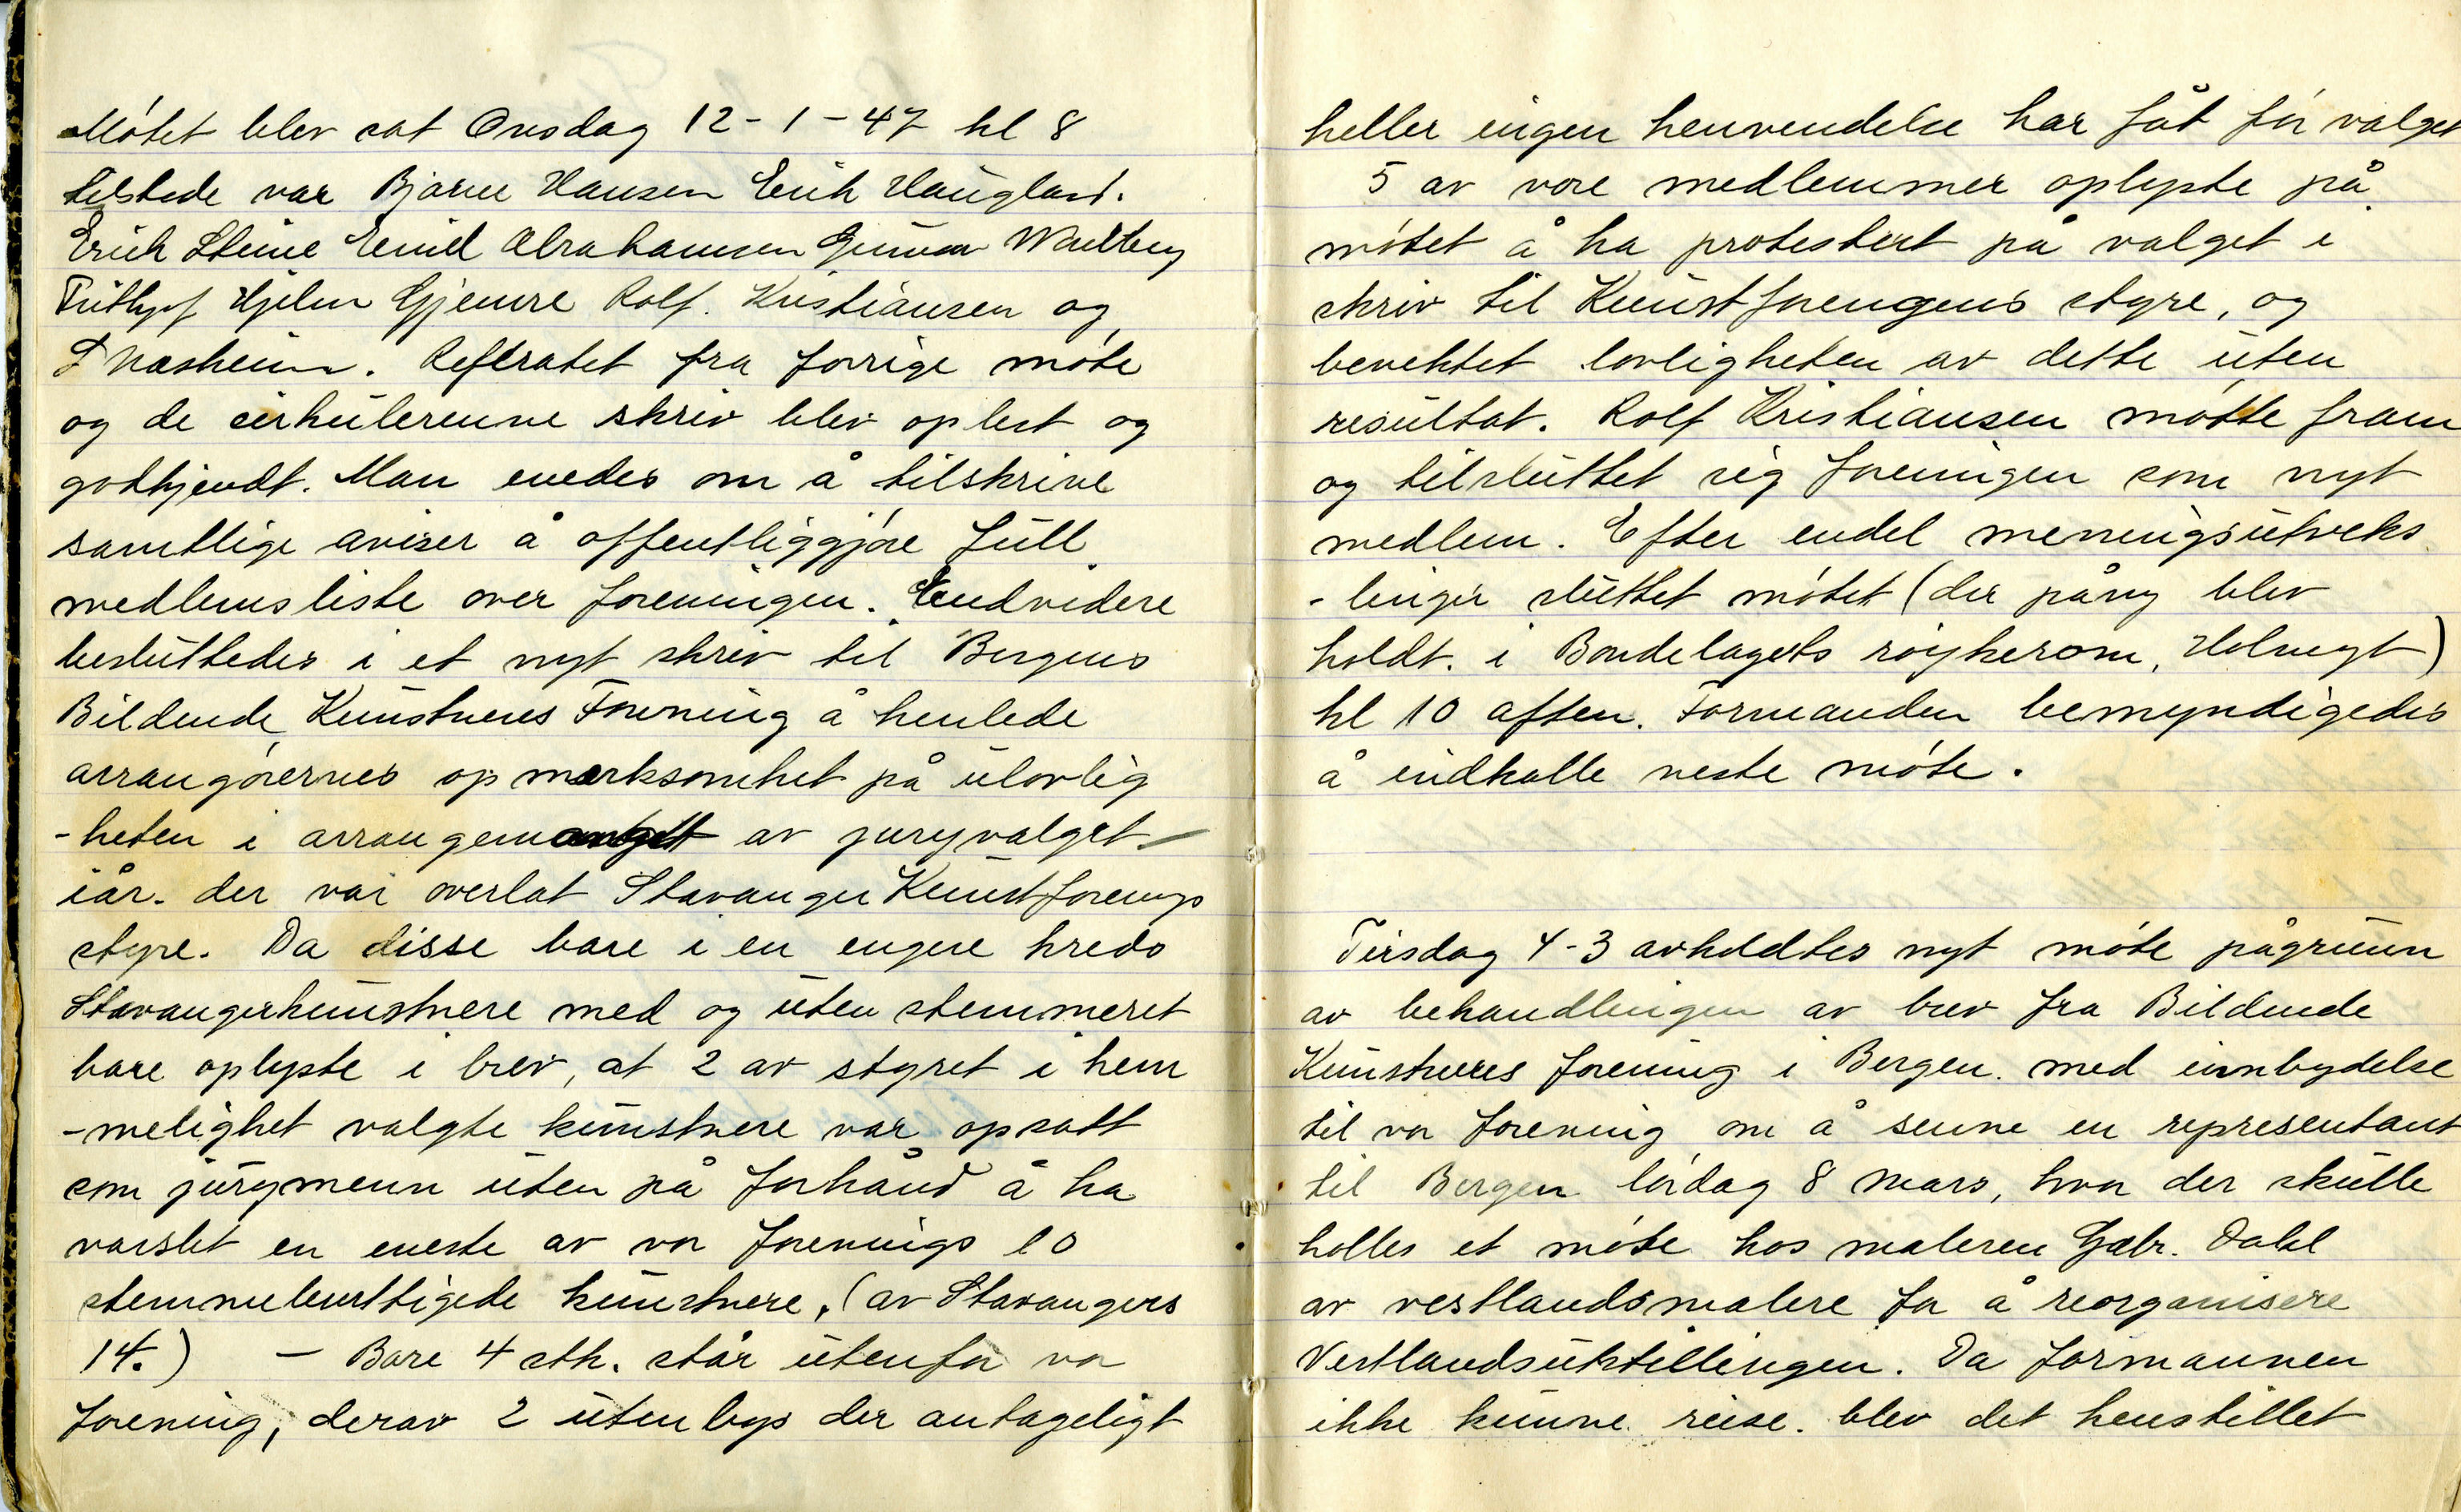 Møtet blev sat Onsdag 12-1-47 kl 8
tilstede var Bjarne Hansen Erik Haugland.
Erich Steine Emil Abrahamsen Gunnar
Hjelm Gjemre Rolf. Kristiansen og
Referatet fra forrige møte
og de cirkulerenne skriv blev oplest og
godkjendt. Man enedes om å tilskrive
samtlige aviser å offentliggjøre full
medlemsliste over foreningen. Endvidere
besluttedes i et nyt skriv til Bergens
Bildende Kunstneres Forening å henlede
arrangørernes opmerksomhet på ulovlig
-heten i av juryvalget
iår. der var overlat Stavanger Kunstforenings
styre. Da disse bare i en engere kreds
Stavangerkunstnere med og uten stemmeret
bare oplyste i brev, at 2 av styret i hem
-melighet valgte kunstnere var opsatt
som jurymenn uten på forhånd å ha
varslet en eneste av vor forenings 10
stemmeberettigede kunstnere, (av Stavangers
14.) - Bare 4 stk. står utenfor vor
forening, derav 2 utenbys der antageligt
heller ingen henvendelse har fåt før valget
5 av vore medlemmer oplyste på
møtet å ha protestert på valget i
skriv til Kunstforengens styre, og
benektet lovligheten av dette uten
resultat. Rolf Kristiansen møtte fram
og tilsluttet sig foreningen som nyt
medlem. Efter endel meningsutveks
-linger sluttet møtet (der påny blev
holdt. i Bondelagets røykerom, )
kl 10 aften. Formanden bemyndigedes
å indkalle neste møte.
Tirsdag 4-3 avholdtes nyt møte pågrunn
av behandlingen av brev fra Bildende
Kunstneres forening i Bergen. med innbydelse
til vor forening om å senne en representant
til Bergen lørdag 8 mars, hvor der skulle
holles et møte hos maleren Gabr. Dahl
av vestlandsmalere for å reorganisere
Vestlandsutstillingen. Da formannen
ikke kunne reise. blev det henstillet